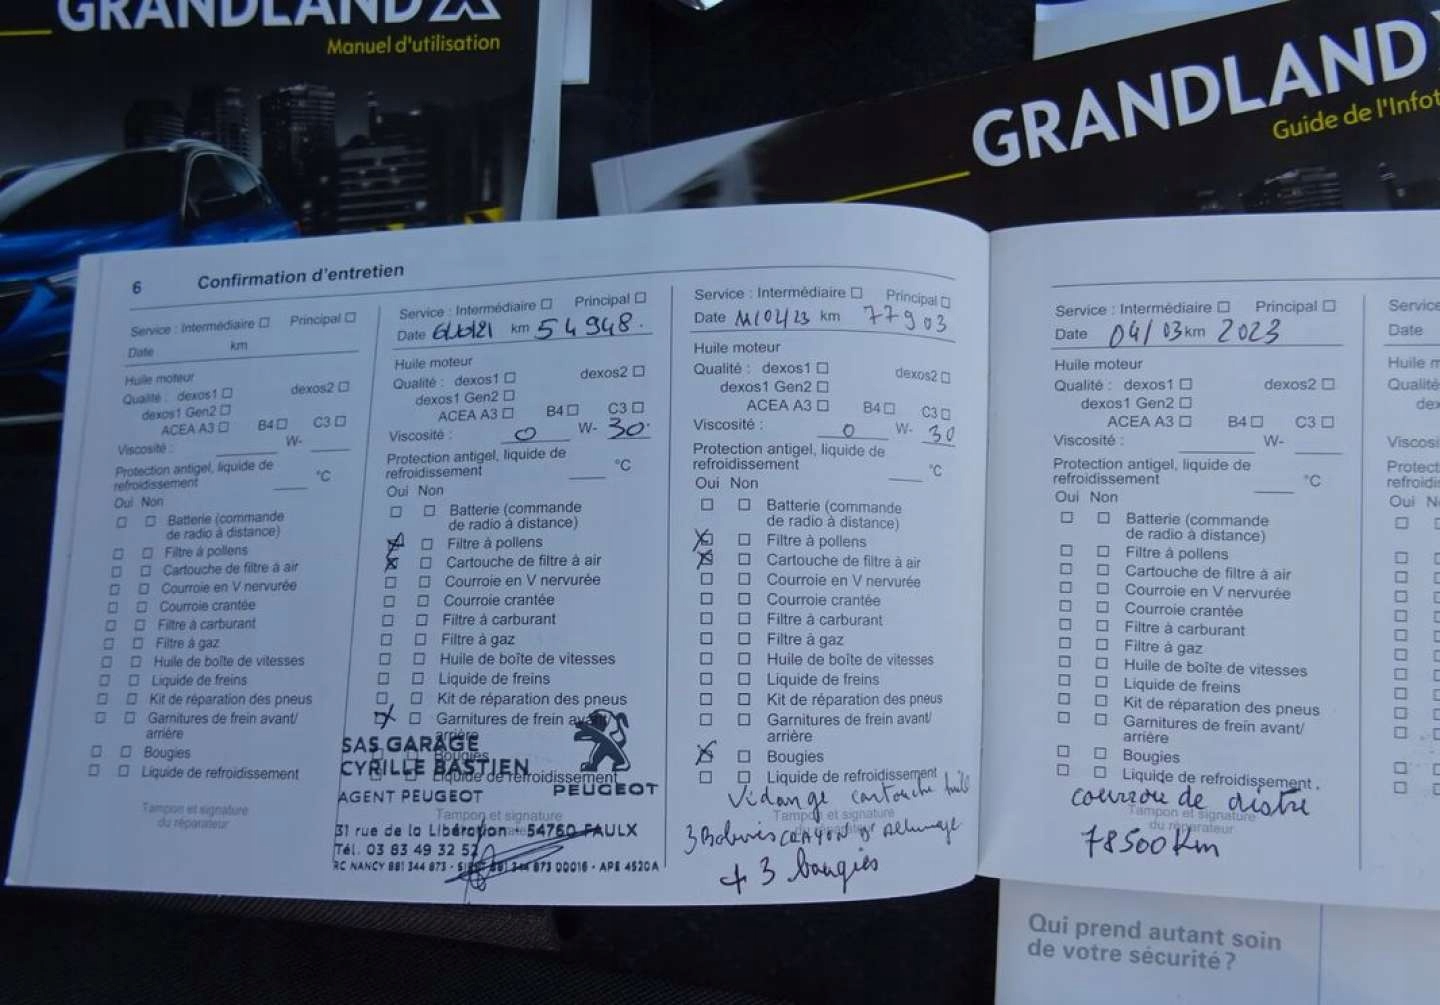 GRANDLAND X
Manuel d'utilisation
GRANDLAND
Guide de l'Infot
6 Confirmation d'entretien
Service : Intermédiaire ☐ Principal ☐
Date km
Huile moteur
Qualité : dexos1 ☐ dexos2 ☐
dexos1 Gen2 ☐
ACEA A3 ☐ B4 ☐ C3 ☐
Viscosité : W-
Protection antigel, liquide de
refroidissement °C
Oui Non
☐ ☐ Batterie (commande
de radio à distance)
☐ ☐ Filtre à pollens
☐ ☐ Cartouche de filtre à air
☐ ☐ Courroie en V nervurée
☐ ☐ Courroie crantée
☐ ☐ Filtre à carburant
☐ ☐ Filtre à gaz
☐ ☐ Huile de boîte de vitesses
☐ ☐ Liquide de freins
☐ ☐ Kit de réparation des pneus
☐ ☐ Garnitures de frein avant/
arrière
☐ ☐ Bougies
☐ ☐ Liquide de refroidissement
Tampon et signature
du réparateur
Service : Intermédiaire ☐ Principal ☐
Date km 54948.
Huile moteur
Qualité : dexos1 ☐ dexos2 ☐
dexos1 Gen2 ☐
ACEA A3 ☐ B4 ☐ C3 ☐
Viscosité : 0 W- 30
Protection antigel, liquide de
refroidissement °C
Oui Non
☐ ☐ Batterie (commande
de radio à distance)
☒ ☐ Filtre à pollens
☒ ☐ Cartouche de filtre à air
☐ ☐ Courroie en V nervurée
☐ ☐ Courroie crantée
☐ ☐ Filtre à carburant
☐ ☐ Filtre à gaz
☐ ☐ Huile de boîte de vitesses
☐ ☐ Liquide de freins
☐ ☐ Kit de réparation des pneus
☒ ☐ Garnitures de frein avant/
arrière
☐ ☐ Bougies
☐ ☐ Liquide de refroidissement
SAS GARAGE
CYRILLE BASTIEN
AGENT PEUGEOT
PEUGEOT
Tampon et signature
31 rue de la Libération - 54760 FAULX
Tél. 03 83 49 32 52
RC NANCY 881 344 873 - SIRET 881 344 873 00016 - APE 4520A
Service : Intermédiaire ☐ Principal ☐
Date 11/02/23 km 77903
Huile moteur
Qualité : dexos1 ☐ dexos2 ☐
dexos1 Gen2 ☐
ACEA A3 ☐ B4 ☐ C3 ☐
Viscosité : 0 W- 30
Protection antigel, liquide de
refroidissement °C
Oui Non
☐ ☐ Batterie (commande
de radio à distance)
☒ ☐ Filtre à pollens
☒ ☐ Cartouche de filtre à air
☐ ☐ Courroie en V nervurée
☐ ☐ Courroie crantée
☐ ☐ Filtre à carburant
☐ ☐ Filtre à gaz
☐ ☐ Huile de boîte de vitesses
☐ ☐ Liquide de freins
☐ ☐ Kit de réparation des pneus
☐ ☐ Garnitures de frein avant/
arrière
☒ ☐ Bougies
☐ ☐ Liquide de refroidissement
Vidange cartouche huile
Tampon et signature
du réparateur
3 Bobines CRAYON D'Allumage
+ 3 bougies
Service : Intermédiaire ☐ Principal ☐
Date 04/03 km 2023
Huile moteur
Qualité : dexos1 ☐ dexos2 ☐
dexos1 Gen2 ☐
ACEA A3 ☐ B4 ☐ C3 ☐
Viscosité : W-
Protection antigel, liquide de
refroidissement °C
Oui Non
☐ ☐ Batterie (commande
de radio à distance)
☐ ☐ Filtre à pollens
☐ ☐ Cartouche de filtre à air
☐ ☐ Courroie en V nervurée
☐ ☐ Courroie crantée
☐ ☐ Filtre à carburant
☐ ☐ Filtre à gaz
☐ ☐ Huile de boîte de vitesses
☐ ☐ Liquide de freins
☐ ☐ Kit de réparation des pneus
☐ ☐ Garnitures de frein avant/
arrière
☐ ☐ Bougies
☐ ☐ Liquide de refroidissement
courroie de distri
Tampon et signature
du réparateur
78500 Km
Service
Date
Huile m
Qualité
dex
Viscosi
Protect
refroidi
Oui N
Qui prend autant soin
de votre sécurité ?